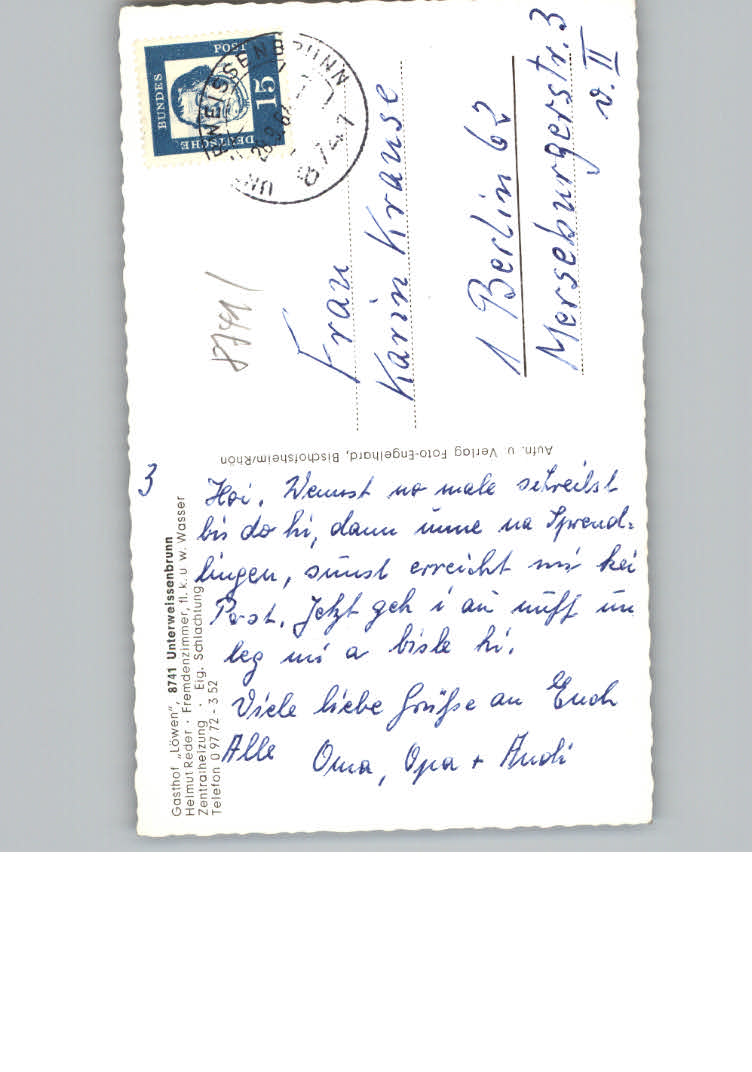 3
Hoi. Wennst no male schreibst
bis do hi, dann nune na Sprend=
lingen, sunst erreicht mi kei
Post. Jetzt geh i au nuff un
leg mi a bisle hi.
Viele liebe Grüße an Euch
Alle Oma, Opa + Andi
Gasthof „Löwen", 8741 Unterweissenbrunn
Helmut Reder · Fremdenzimmer, fl. k. u. w. Wasser
Zentralheizung · Eig. Schlachtung
Telefon 0 97 72 - 3 52
Aufn. u. Verlag Foto-Engelhard, Bischofsheim/Rhön
8741/
Frau
Karin Krause
1 Berlin 62
Merseburgerstr. 3
v. II
DEUTSCHE
BUNDES
POST
15
8741